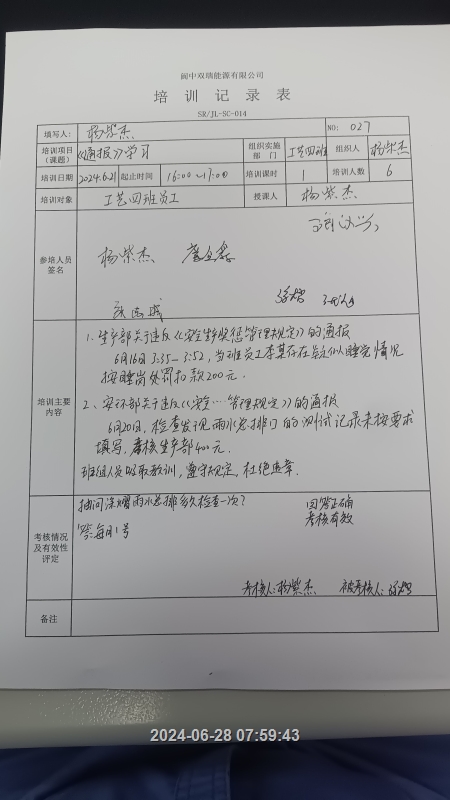 阆中双瑞能源有限公司
培 训 记 录 表
SR/JL-SC-014
填写人: 杨紫杰 NO: 027
培训项目(课题) 《通报》学习 组织实施部门 工艺四班 组织人 杨紫杰
培训日期 2024.6.21 起止时间 16:00~17:00 培训课时 1 培训人数 6
培训对象 工艺四班员工 授课人 杨紫杰
参培人员签名
杨紫杰、
培训主要内容
1、生产部关于违反《安全生产奖惩管理规定》的通报
6月16日 3:35-3:52, 当班员工李某存在缺似睡觉情况
按睡岗处罚扣款200元.
2、安环部关于违反《安全…管理规定》的通报
6月20日, 检查发现雨水总排门的测试记录未按要求
填写, 考核生产部400元.
班组人员吸取教训, 遵守规定, 杜绝违章.
考核情况及有效性评定
抽问 雨水总排多久检查一次? 回答正确
答:每月1号 考核有效
考核人:杨紫杰 被考核人:
备注
2024-06-28 07:59:43